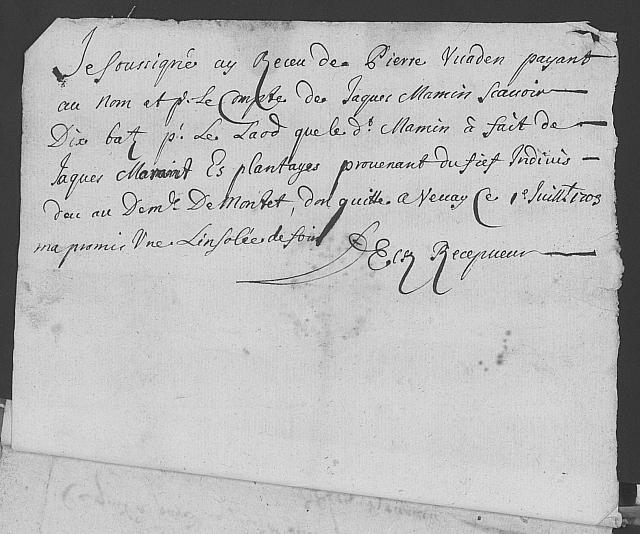 Je Soussigné ay Receu de Pierre Vuaden payant
au Nom et pr. Le Compte de Jaques Mamin Scavoir
Dix batz pr. Le Laod que le dt. Mamin à fait de
Jaques Es plantayes provenant du fief Indivis
deu au De Montet, don quitte a Vevay Ce 1e Juillet 1703
ma promis Une de foin
Recepveur